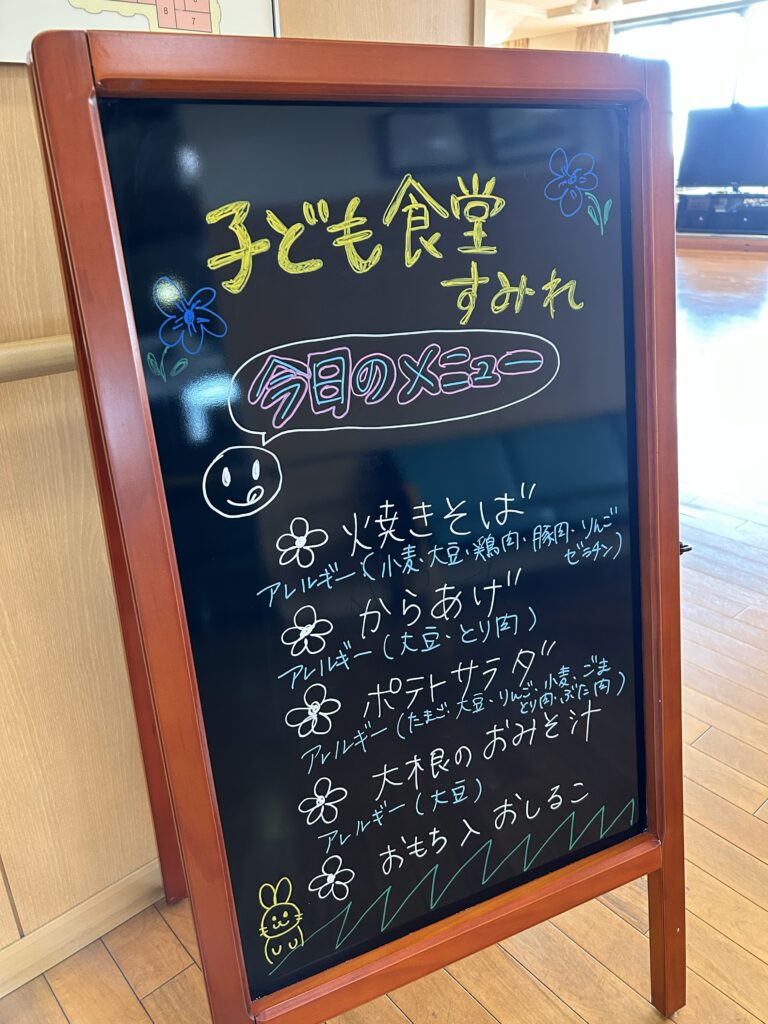 8 7
子ども食堂
すみれ
今日のメニュー
焼きそば
アレルギー(小麦・大豆・鶏肉・豚肉・りんご
ゼラチン)
からあげ
アレルギー(大豆・とり肉)
ポテトサラダ
アレルギー(たまご・大豆・りんご・小麦・ごま
とり肉・ぶた肉)
大根のおみそ汁
アレルギー(大豆)
おもち入おしるこ